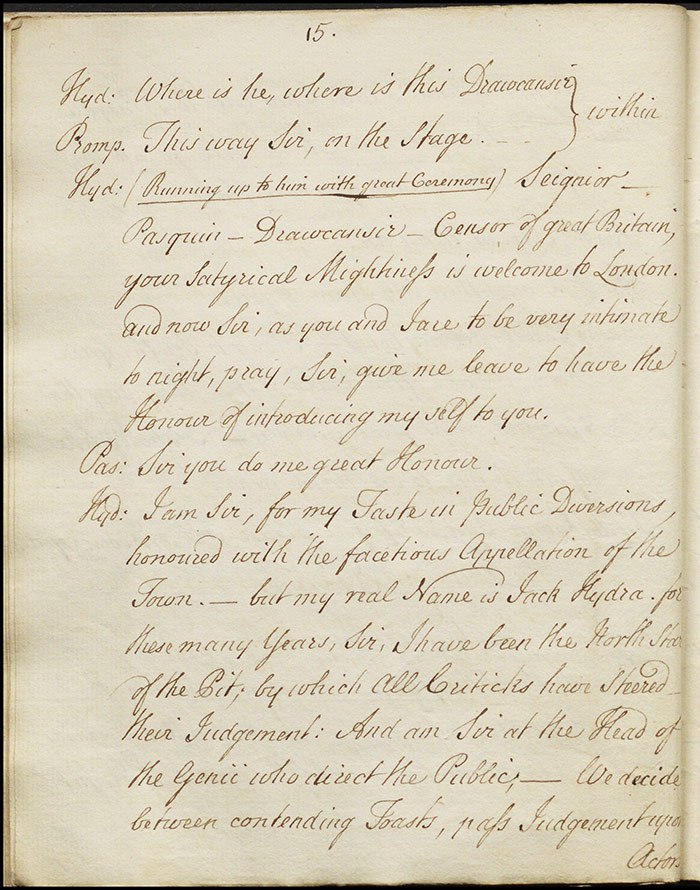 15.
Hyd: Where is he, where is this Drawcansir } within
Promp. This way Sir, on the Stage. - -
Hyd: (Running up to him with great Ceremony) Seignior —
Pasquin — Drawcansir — Censor of great Britain,
your Satyrical Mightiness is welcome to London.
and now Sir, as you and I are to be very intimate
to night, pray, Sir, give me leave to have the
Honour of introducing my self to you.
Pas: Sir you do me great Honour.
Hyd: I am Sir, for my Taste in Public Diversions,
honoured with the facetious Appellation of the
Town. — but my real Name is Jack Hydra. for
these many Years, Sir, I have been the North Star
of the Pit; by which All Criticks have Steered
their Judgement: And am Sir at the Head of
the Genii who direct the Public; — We decide
between contending Toasts, pass Judgement upon
Actors